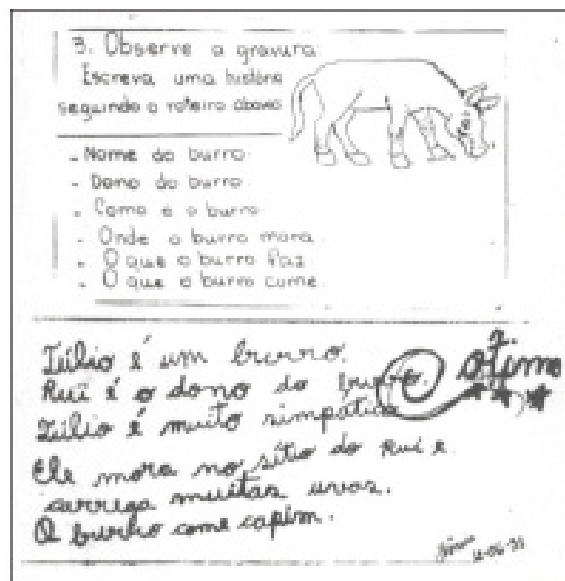 3. Observe a gravura
Escreva uma história
seguindo o roteiro abaixo
- Nome do burro.
- Dono do burro.
- Como é o burro.
- Onde o burro mora.
- O que o burro faz.
- O que o burro come.
Túlio é um burro.
Rui é o dono do burro.
Túlio é muito simpático
Ótimo
Ele mora no sítio do Rui e
carrega muitas uvas.
O burro come capim.